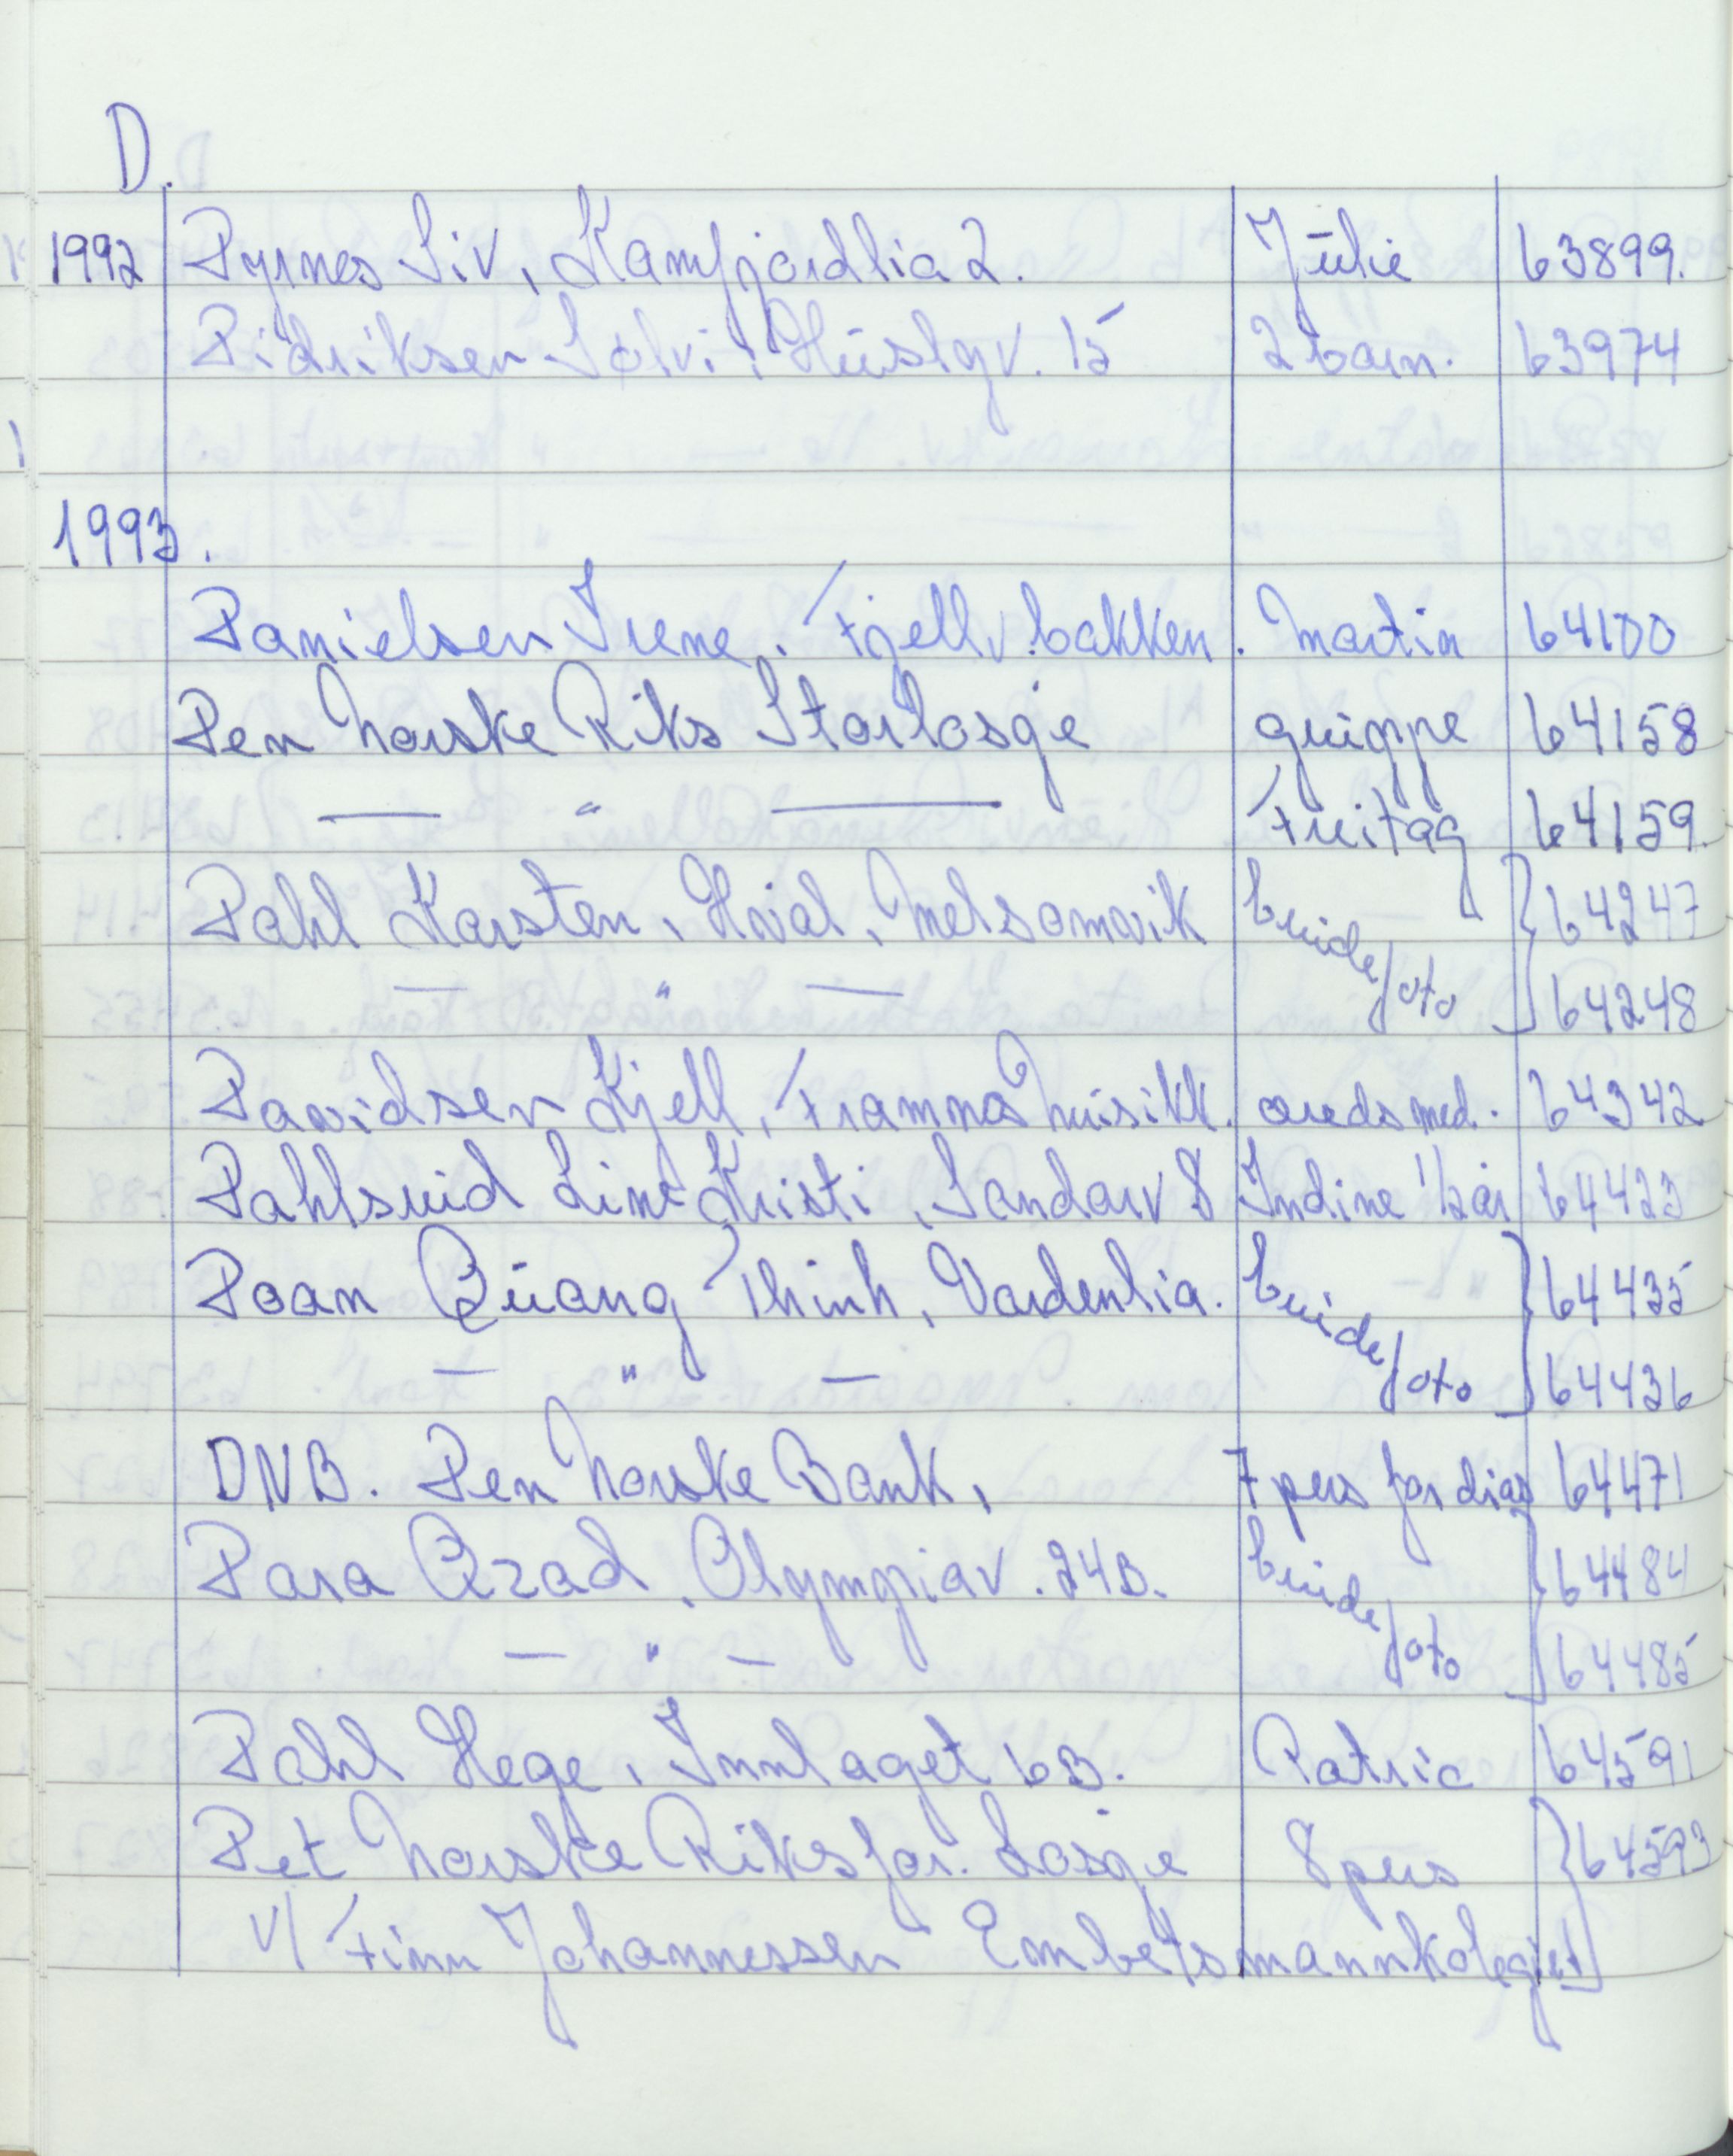 D.
1992 Dyrnes Siv, Kamfjordlia 2. Julie 63899.
Didriksen Solvi, Huslgv. 15 2 barn. 63974
1993.
Danielsen Irene. Fjellv.bakken. Martin 64100
Den Norske Riks Storlosje gruppe 64158
— " — Fritag 64159.
Dahl Karsten, Hval, Melsomvik brude 64247
— " — foto 64248
Davidsen Kjell, Framnæs musikk. areds med. 64342
Dahlsrud Line Kristi, Sandarv 8 Indine 1/2 år 64423
Doan Quang Thinh, Vardenlia. brude 64435
— " — foto 64436
DNB. Den Norske Bank, 7 pers for dias 64471
Dara Azad, Olympiav. 24B. brude 64484
— " — foto 64485
Dahl Hege, Innlaget 6B. Patric 64591
Det Norske Riksfor. Losje 8 pers 64593
v/ Finn Johannessen Embetsmannkolegiet